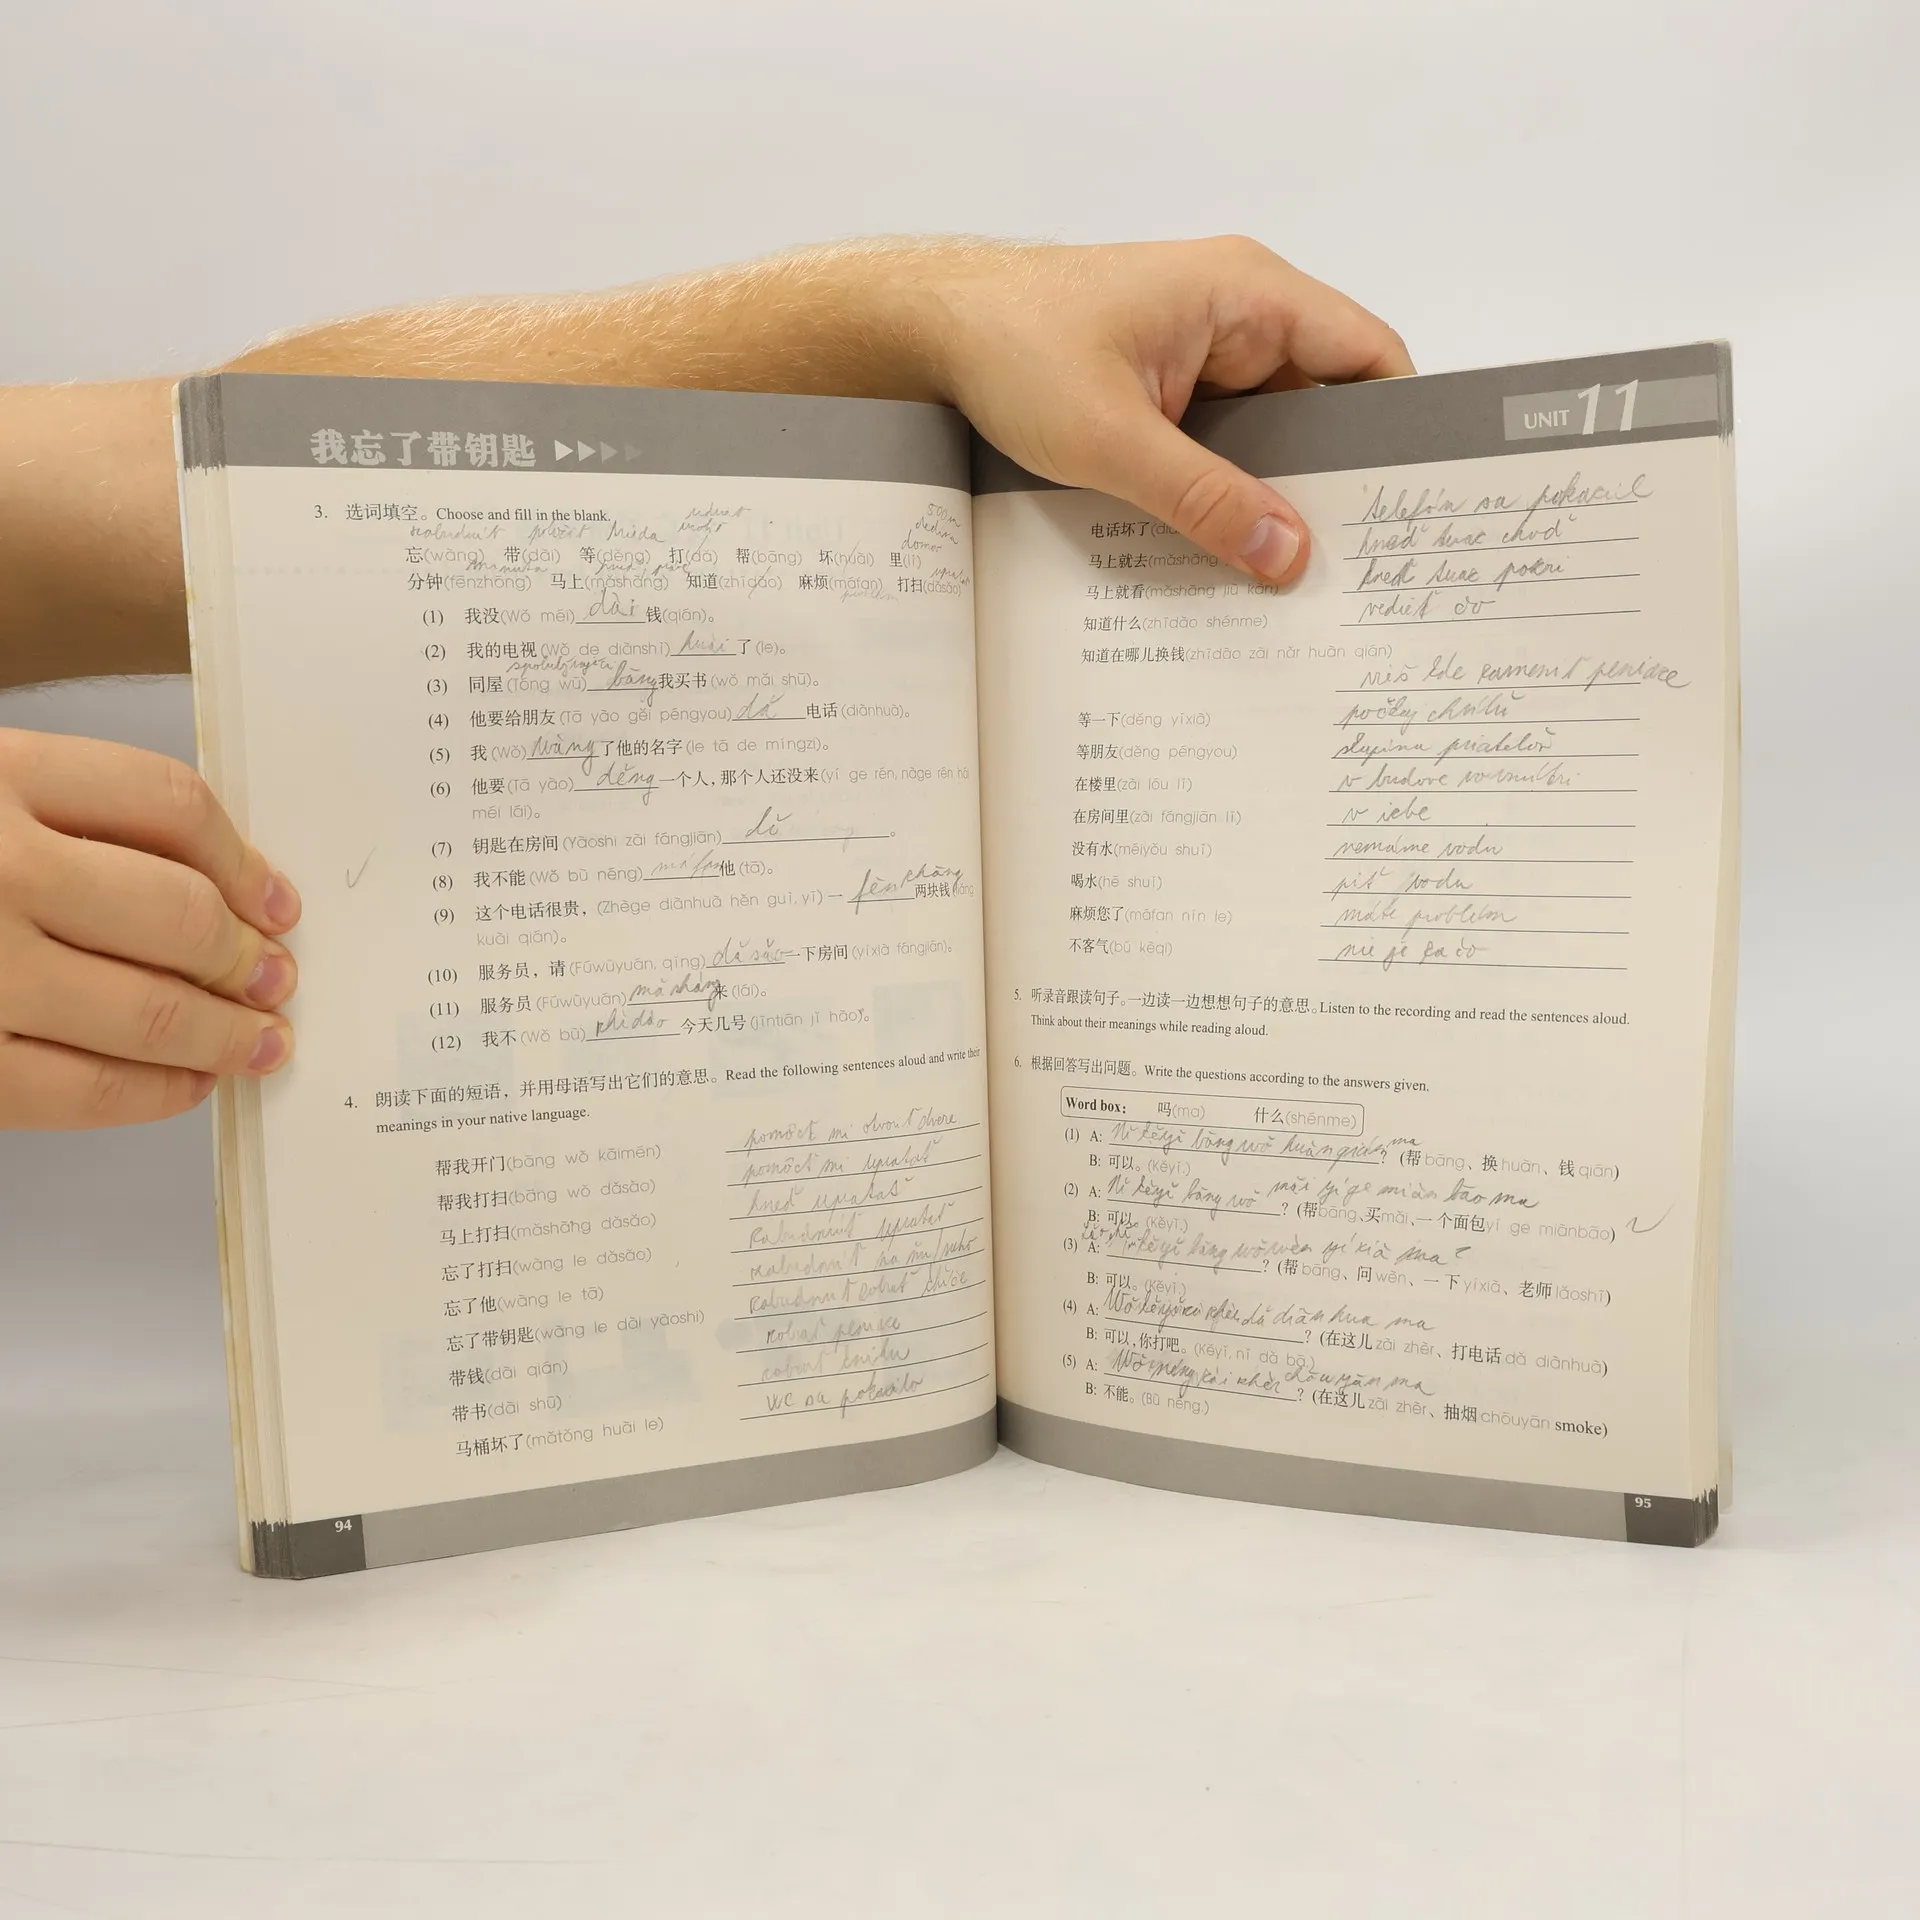 我忘了带钥匙
3. 选词填空。Choose and fill in the blank.
忘(wàng) 带(dài) 等(děng) 打(dǎ) 帮(bāng) 坏(huài) 里(lǐ)
分钟(fēnzhōng) 马上(mǎshàng) 知道(zhīdào) 麻烦(máfan) 打扫(dǎsǎo)
(1) 我没(Wǒ méi) dài 钱(qián)。
(2) 我的电视(Wǒ de diànshì) huài 了(le)。
(3) 同屋(Tóng wū) bāng 我买书(wǒ mǎi shū)。
(4) 他要给朋友(Tā yào gěi péngyou) dǎ 电话(diànhuà)。
(5) 我(Wǒ) wàng 了他的名字(le tā de míngzi)。
(6) 他要(Tā yào) děng 一个人，那个人还没来(yí ge rén, nàge rén hái
méi lái)。
(7) 钥匙在房间(Yàoshi zài fángjiān) 。
(8) 我不能(Wǒ bù néng) máfan 他(tā)。
(9) 这个电话很贵，(Zhège diànhuà hěn guì, yī) 一 fēn chāng 两块钱(liǎng
kuài qián)。
(10) 服务员，请(Fúwùyuán, qǐng) dǎ sǎo 一下房间(yíxià fángjiān)。
(11) 服务员(Fúwùyuán) mǎ shàng 来(lái)。
(12) 我不(Wǒ bù) zhī dào 今天几号(jīntiān jǐ hào)。
4. 朗读下面的短语，并用母语写出它们的意思。Read the following sentences aloud and write their
meanings in your native language.
帮我开门(bāng wǒ kāimén) pomôcť mi otvoriť dvere
帮我打扫(bāng wǒ dǎsǎo) pomôcť mi upratať
马上打扫(mǎshàng dǎsǎo) hneď upratať
忘了打扫(wàng le dǎsǎo) zabudnúť upratať
忘了他(wàng le tā) zabudnúť na
忘了带钥匙(wàng le dài yàoshi) zabudnúť zobrať
带钱(dài qián) zobrať peniaze
带书(dài shū) zobrať knihu
马桶坏了(mǎtǒng huài le) WC sa pokazilo
94
UNIT 11
电话坏了 telefón sa pokazil
马上就去(mǎshàng hneď choď
马上就看(mǎshàng jiù kàn) hneď
知道什么(zhīdào shénme) vedieť čo
知道在哪儿换钱(zhīdào zài nǎr huàn qián)
vieš kde zameniť peniaze
等一下(děng yíxià) počkaj chvíľu
等朋友(děng péngyou) skupina priateľov
在楼里(zài lóu lǐ) v budove vo vnútri
在房间里(zài fángjiān lǐ) v izbe
没有水(méiyǒu shuǐ) nemáme vodu
喝水(hē shuǐ) piť vodu
麻烦您了(máfan nín le) máte problém
不客气(bú kèqi) nie je za čo
5. 听录音跟读句子。一边读一边想想句子的意思。Listen to the recording and read the sentences aloud.
Think about their meanings while reading aloud.
6. 根据回答写出问题。Write the questions according to the answers given.
Word box: 吗(ma) 什么(shénme)
(1) A: Nǐ kěyǐ bāng wǒ huàn qián ma ? (帮bāng、换huàn、钱qián)
B: 可以。(Kěyǐ.)
(2) A: Nǐ kěyǐ bāng wǒ mǎi yí ge miàn bāo ma ? (帮bāng、买mǎi、一个面包yí ge miànbāo)
B: 可以。(Kěyǐ.)
(3) A: kěyǐ bāng wǒ wèn yí xià ma? ? (帮bāng、问wèn、一下yíxià、老师lǎoshī)
B: 可以。(Kěyǐ.)
(4) A: Wǒ kěyǐ zài zhèr dǎ diàn hua ma ? (在这儿zài zhèr、打电话dǎ diànhuà)
B: 可以，你打吧。(Kěyǐ, nǐ dǎ ba.)
(5) A: Wǒ néng zài zhèr chōu yān ma ? (在这儿zài zhèr、抽烟chōuyān smoke)
B: 不能。(Bù néng.)
95